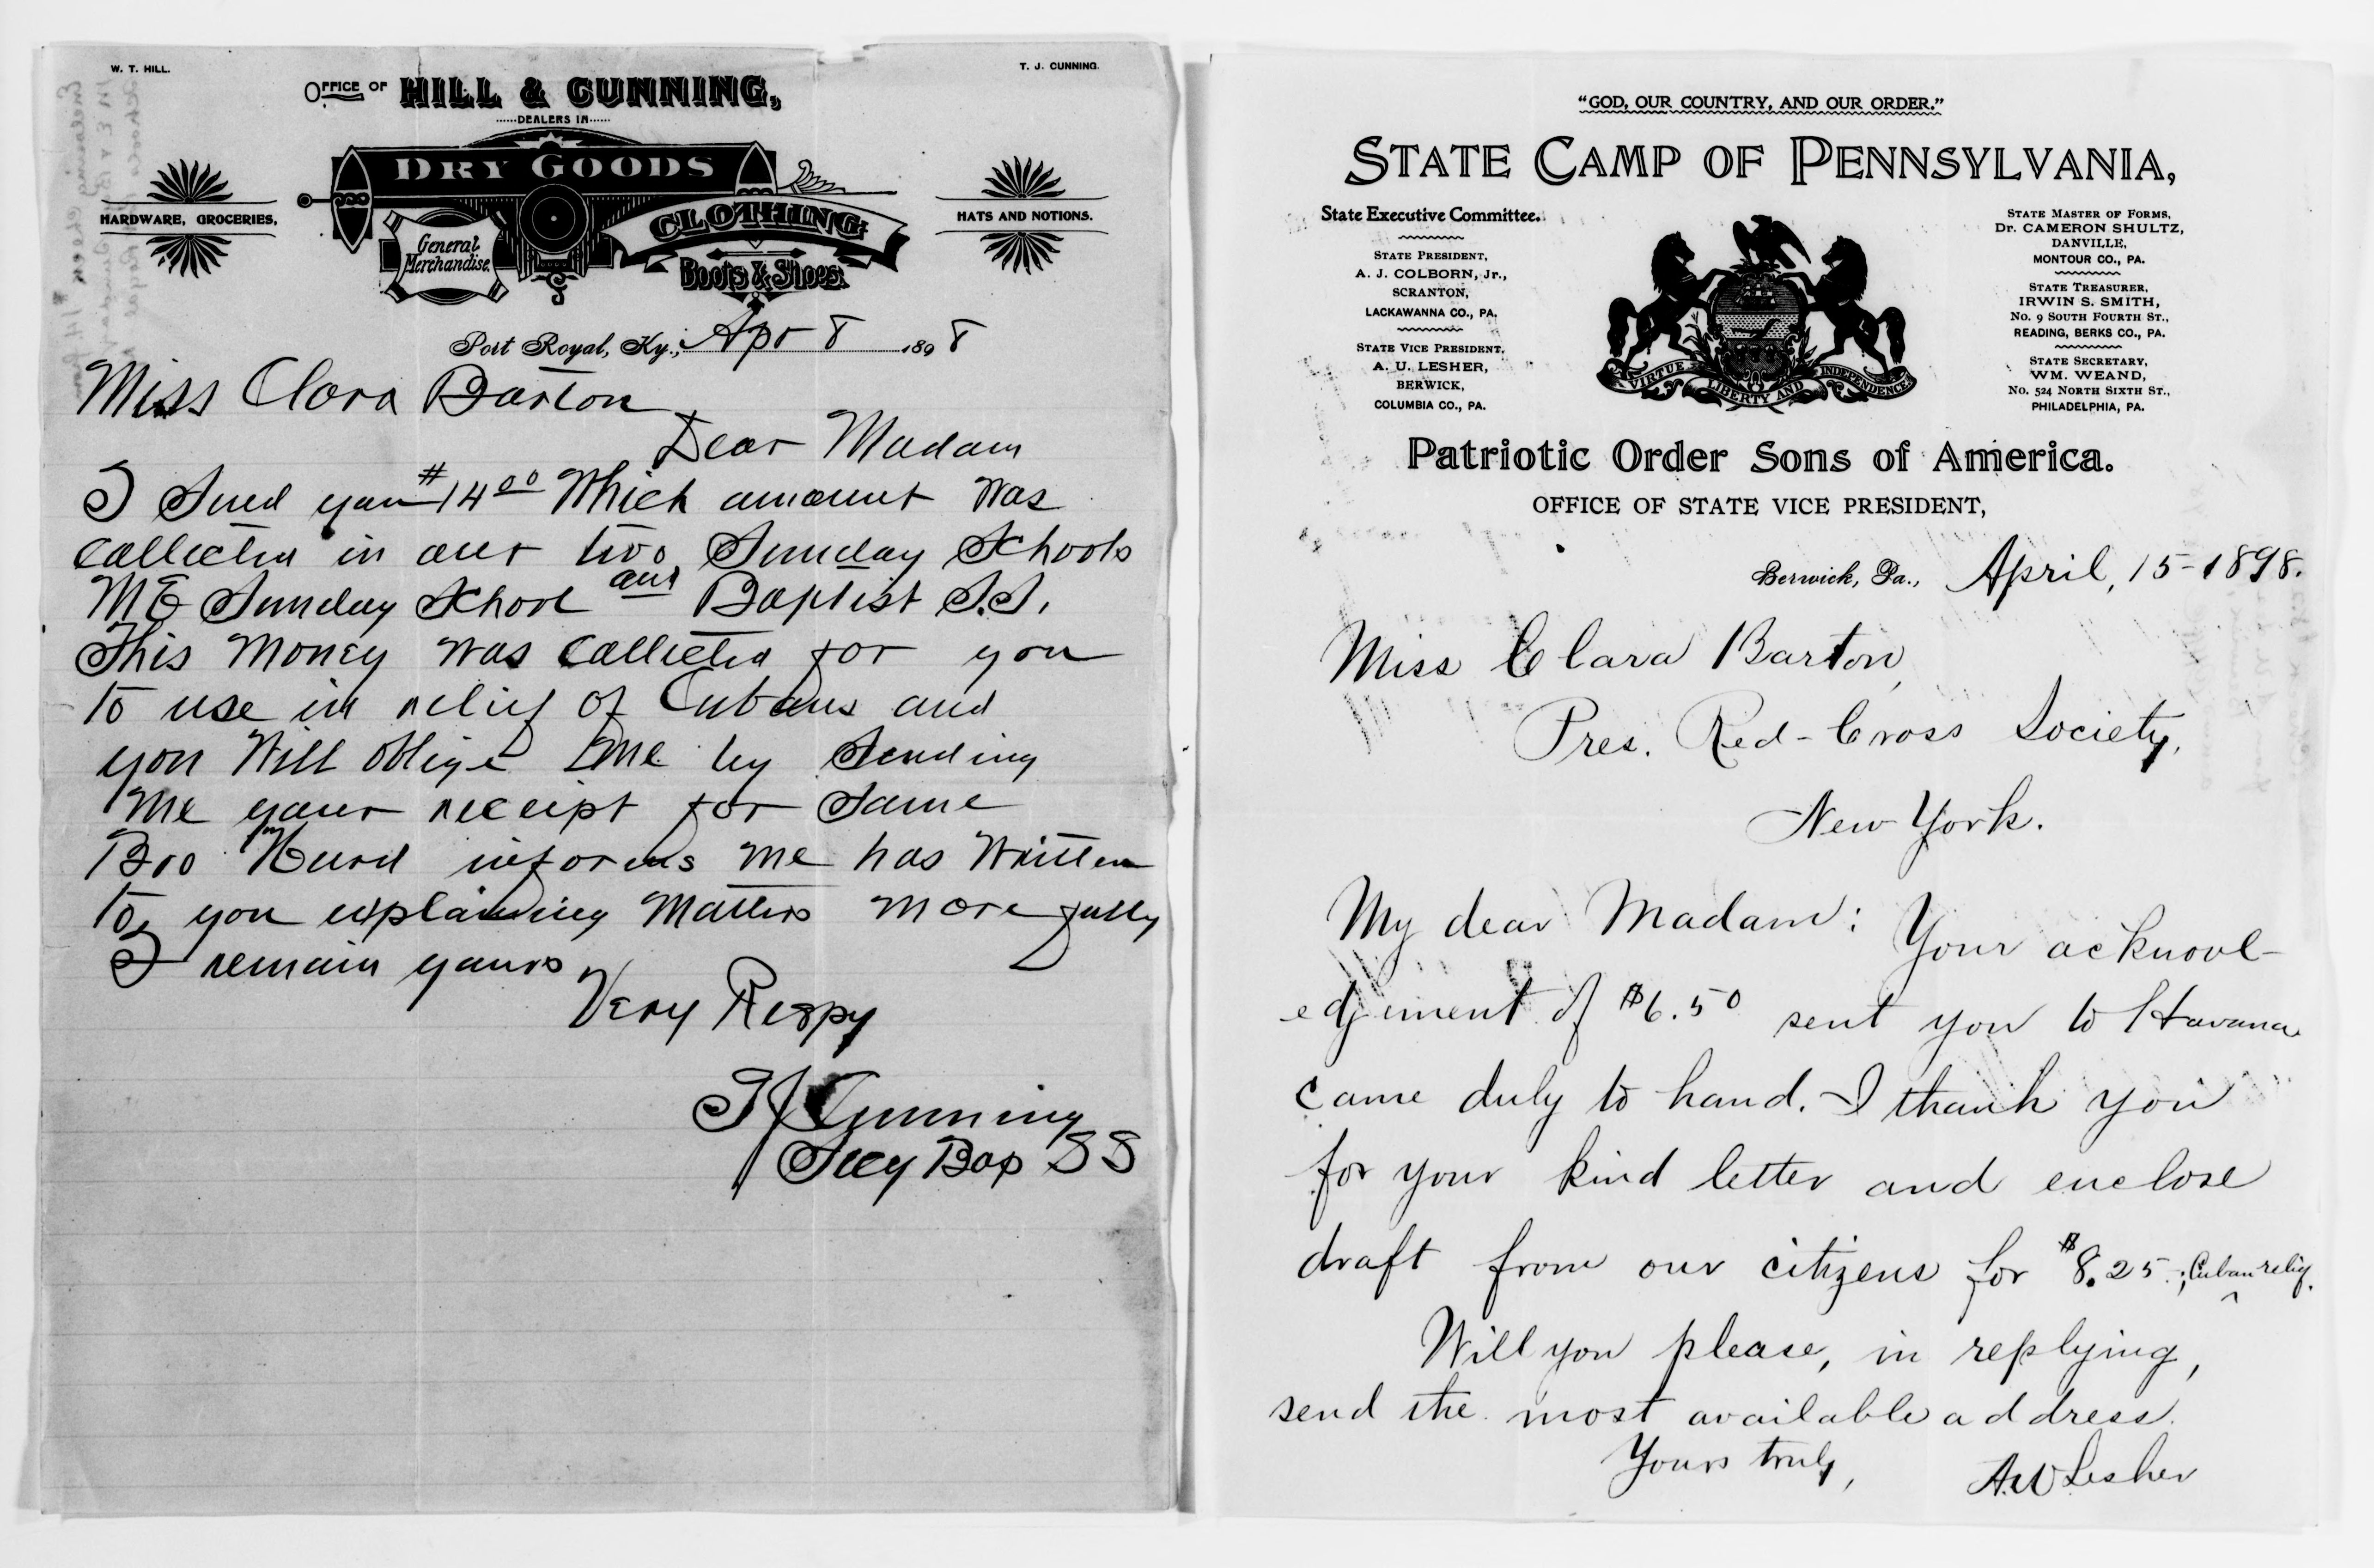 W. T. HILL.
T. J. CUNNING.
OFFICE OF HILL & CUNNING,
......DEALERS IN......
DRY GOODS
CLOTHING
General
Merchandise.
Boots & Shoes.
HARDWARE, GROCERIES,
HATS AND NOTIONS.
Port Royal, Ky., Apr 8 1898
Miss Clara Barton
Dear Madam
I Send you $14 00 Which amount was
Collected in our two Sunday Schools
ME Sunday School and Baptist S.S.
This Money was Collected for you
to use in relief of Cubans and
you Will oblige me by Sending
Me your receipt for Same
Bro informs me has Written
to you explaining Matters more fully
I remain yours
Very Respy
T J Cunning
Secy Bap SS
"GOD, OUR COUNTRY, AND OUR ORDER."
STATE CAMP OF PENNSYLVANIA,
State Executive Committee.
STATE PRESIDENT,
A. J. COLBORN, Jr.,
SCRANTON,
LACKAWANNA CO., PA.
STATE VICE PRESIDENT,
A. U. LESHER,
BERWICK,
COLUMBIA CO., PA.
VIRTUE LIBERTY AND INDEPENDENCE
STATE MASTER OF FORMS,
Dr. CAMERON SHULTZ,
DANVILLE,
MONTOUR CO., PA.
STATE TREASURER,
IRWIN S. SMITH,
No. 9 SOUTH FOURTH ST.,
READING, BERKS CO., PA.
STATE SECRETARY,
WM. WEAND,
No. 524 NORTH SIXTH ST.,
PHILADELPHIA, PA.
Patriotic Order Sons of America.
OFFICE OF STATE VICE PRESIDENT,
Berwick, Pa., April, 15-1898.
Miss Clara Barton,
Pres. Red-Cross Society,
New York.
My dear Madam: Your acknowl-
edgement of $6.50 sent you to Havana
came duly to hand. I thank you
for your kind letter and enclose
draft from our citizens for $8.25.; Cuban relief.
Will you please, in replying,
send the most available address.
Yours truly,
A.U Lesher